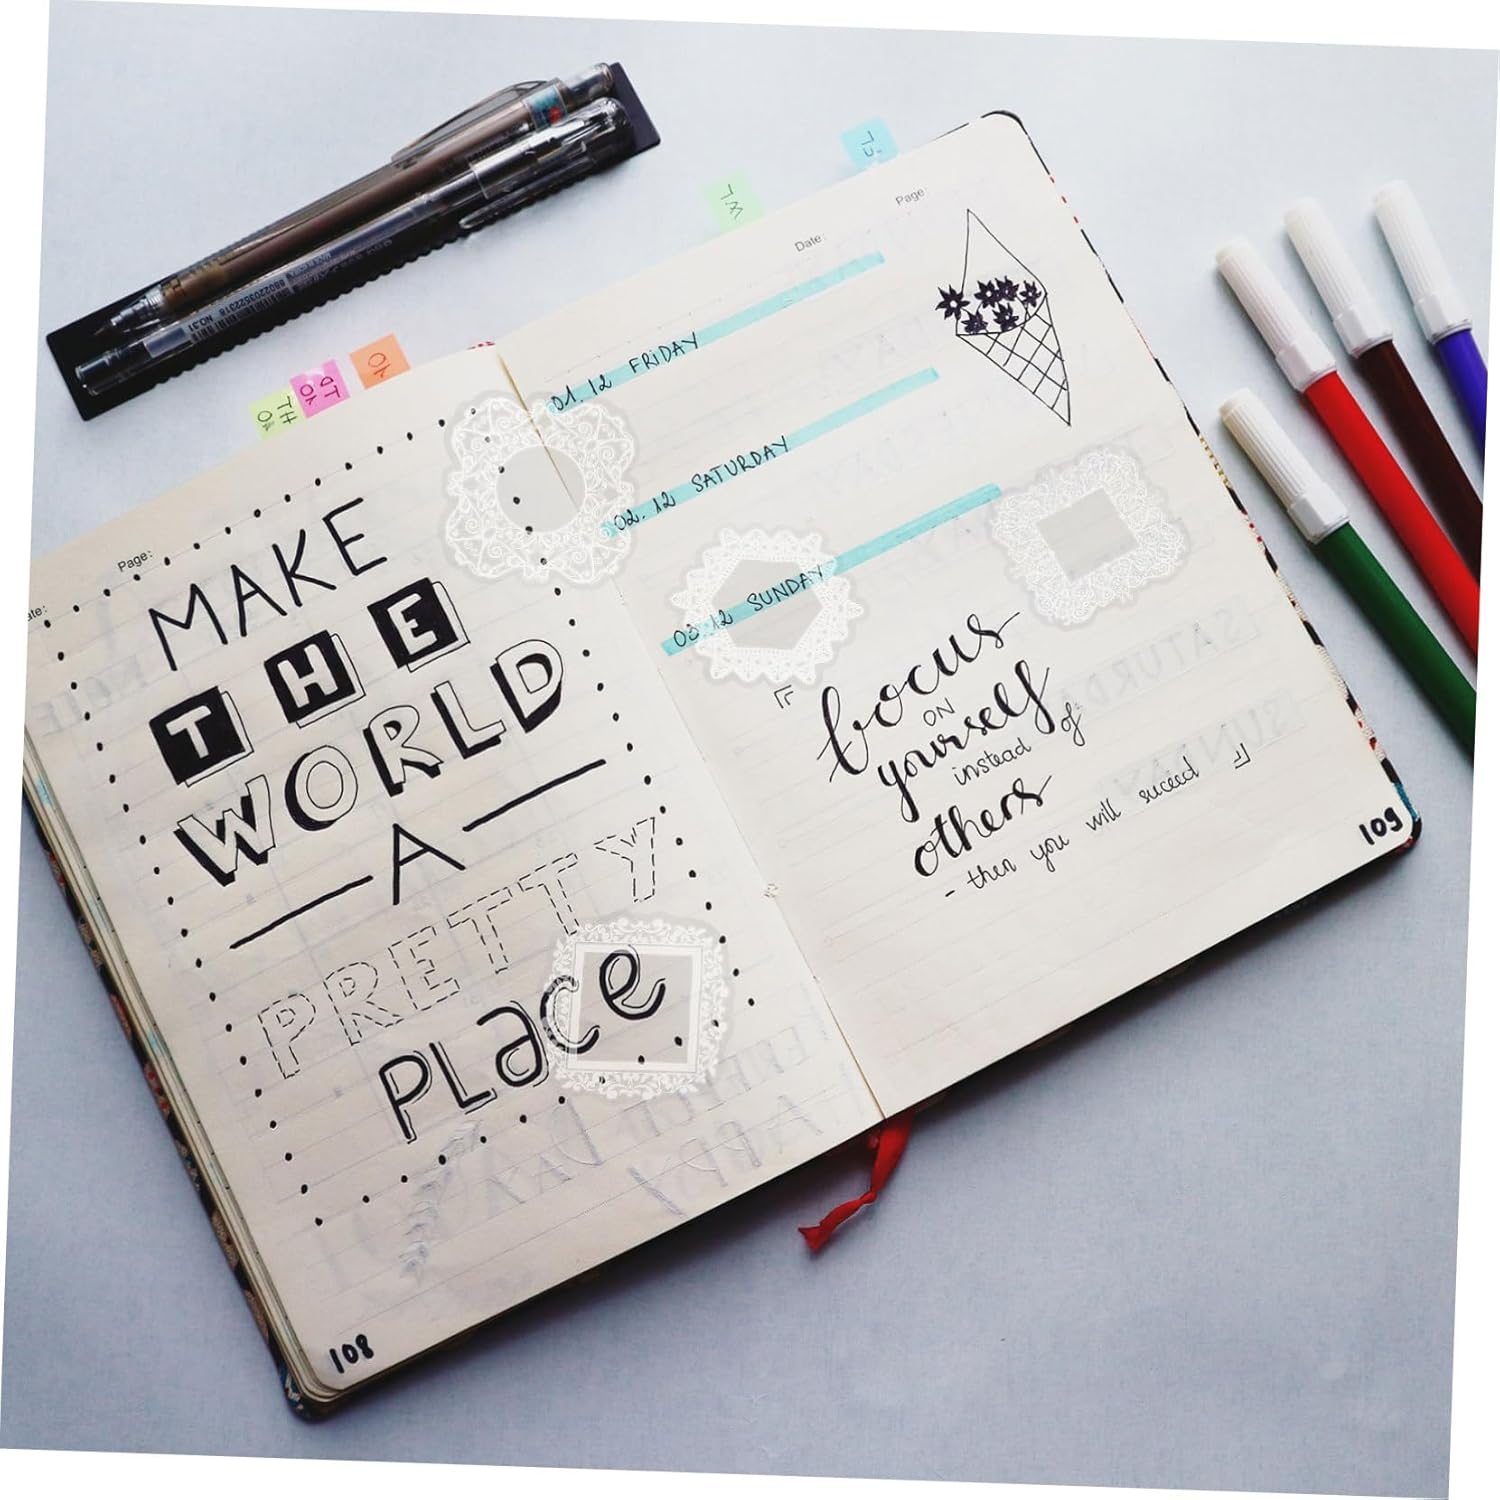 Page:
MAKE
THE
WORLD
A
PRETTY
PLace
108
Date:
Page:
01. 12 FRIDAY
02. 12 SATURDAY
03. 12 SUNDAY
focus
ON
yourself
instead of
others
- then you will suceed
109
8802203522318 NO.31